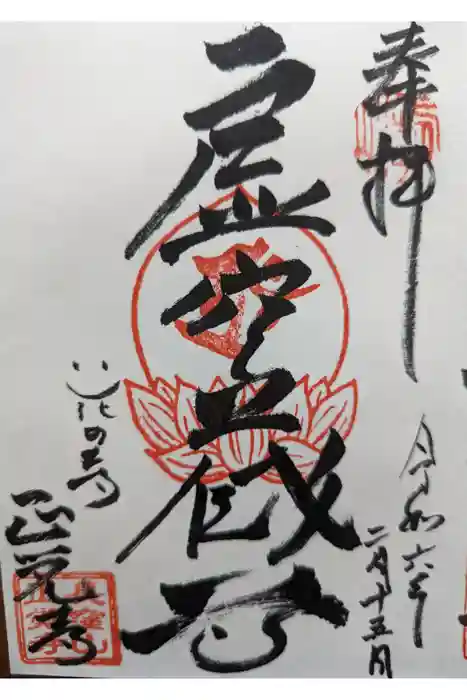 奉拝
令和六年
二月十五日
虚空蔵尊
心花の寺
正覚寺